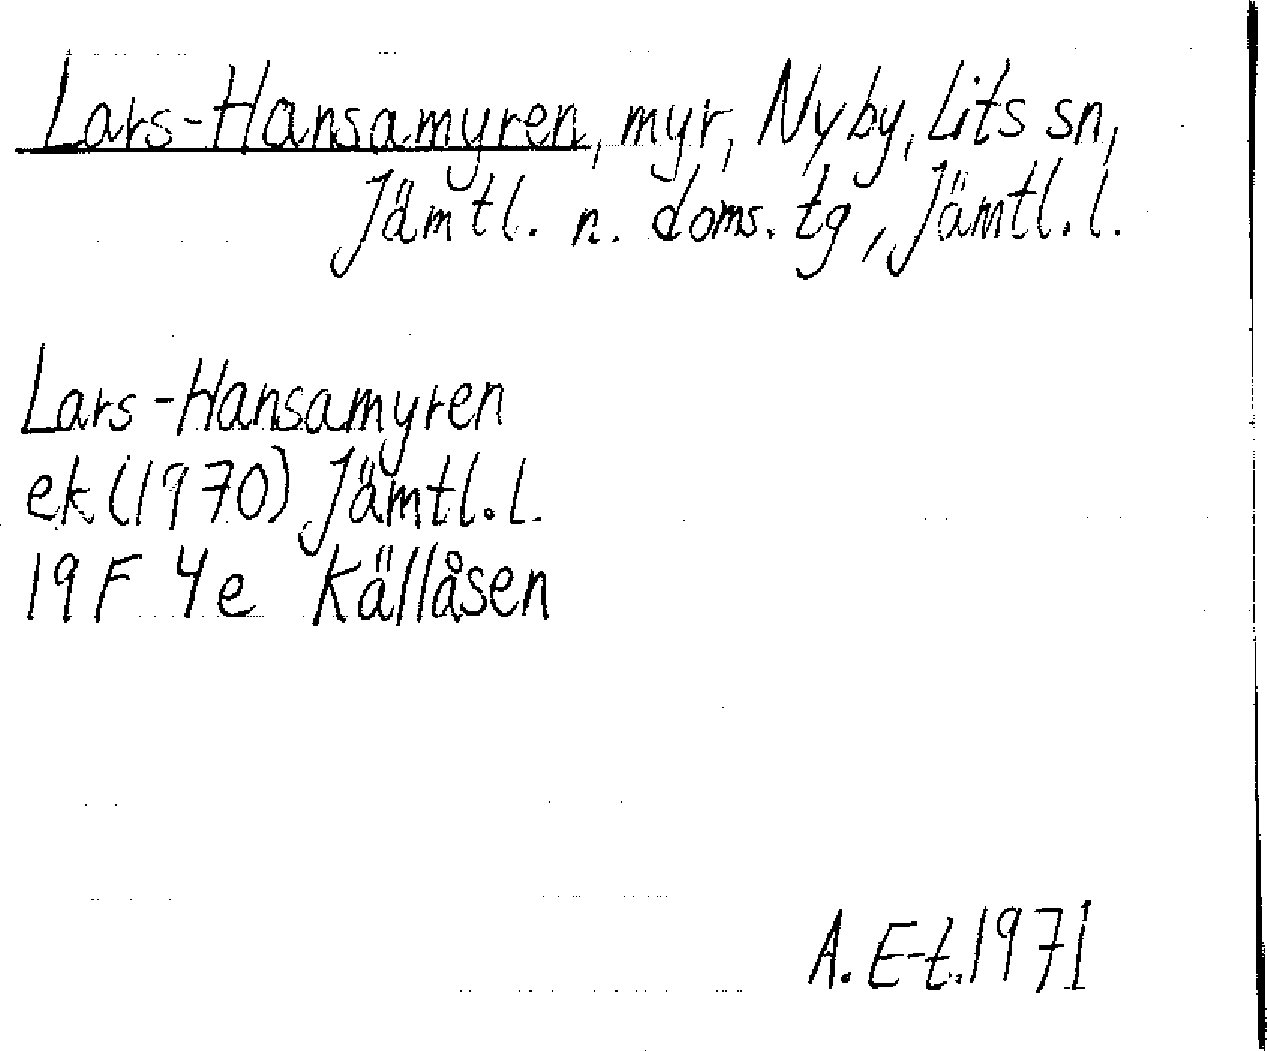 Lars-Hansamyren, myr, Nyby, Lits sn,
Jämtl. n. doms. tg, Jämtl. l.
Lars-Hansamyren
ek (1970) Jämtl. l.
19 F 4e Källåsen
A. E-t. 1971